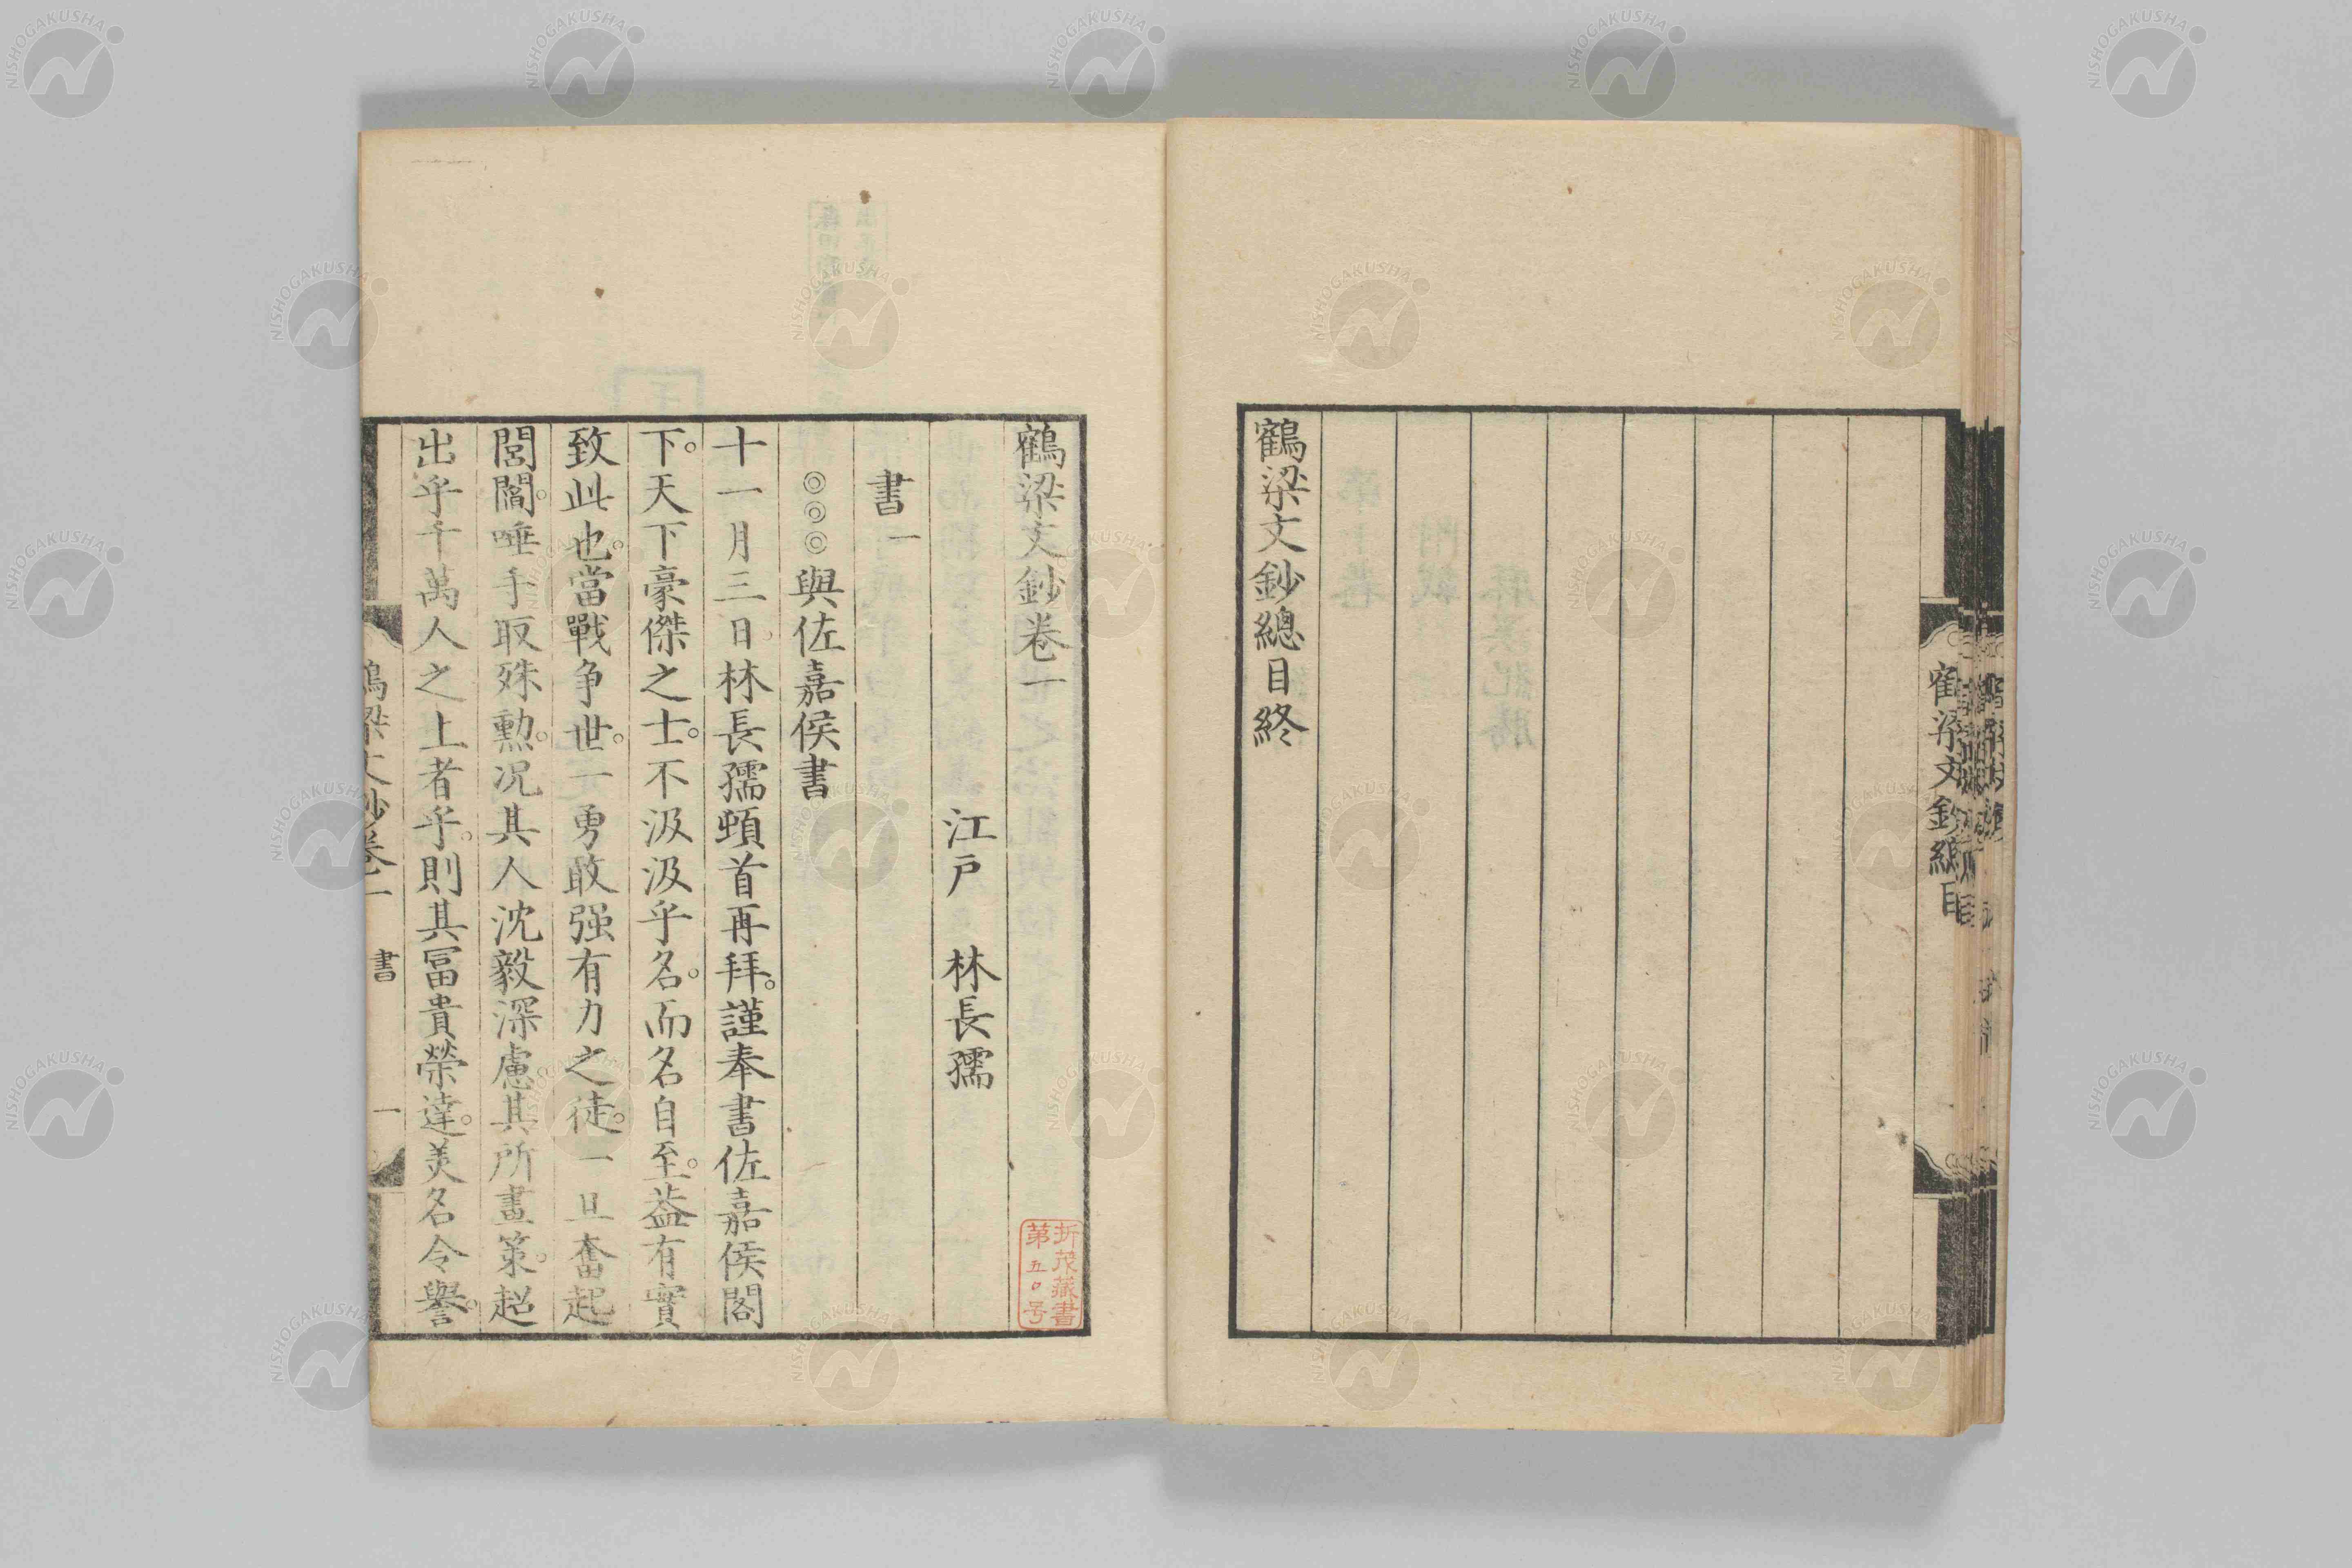 鶴梁文鈔總目終
鶴梁文鈔總目
鶴梁文鈔卷一
江戸　林長孺
書一
◎◎◎與佐嘉侯書
十一月三日林長孺頓首再拜。謹奉書佐嘉侯閤
下。天下豪傑之士。不汲汲乎名。而名自至。葢有實
致此也。當戰争世。一勇敢强有力之徒。一旦奮起
閭閻。唾手取殊勲。况其人沈毅深慮其所畫策。超
出乎千萬人之上者乎。則其冨貴榮達。美名令譽。
鶴梁文鈔卷一　書　一
折茂藏書
第五〇号
NISHOGAKUSHA